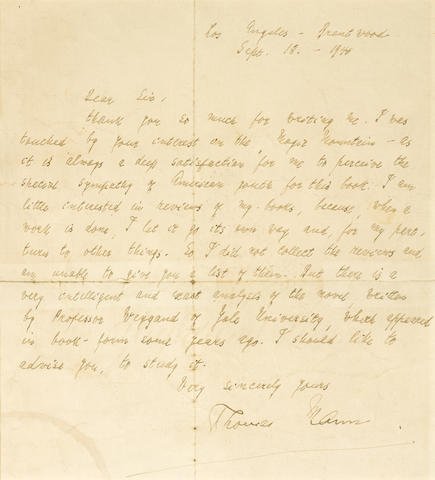 Los Angeles - Brentwood
Sept. 18. - 1940
Dear Sir,
thank you so much for writing me. I was
touched by your interest on the "Magic Mountain - as
it is always a deep satisfaction for me to perceive the
special sympathy of American youth for this book. I am
little interested in reviews of my books, because, when a
work is done, I let it go its own way and, for my part,
turn to other things. So I did not collect the reviews and
am unable to give you a list of them. But there is a
very intelligent and exact analysis of the novel, written
by Professor Weygand of Yale University, which appeared
in book-form some years ago. I should like to
advise you, to study it.
Very sincerely yours
Thomas Mann.